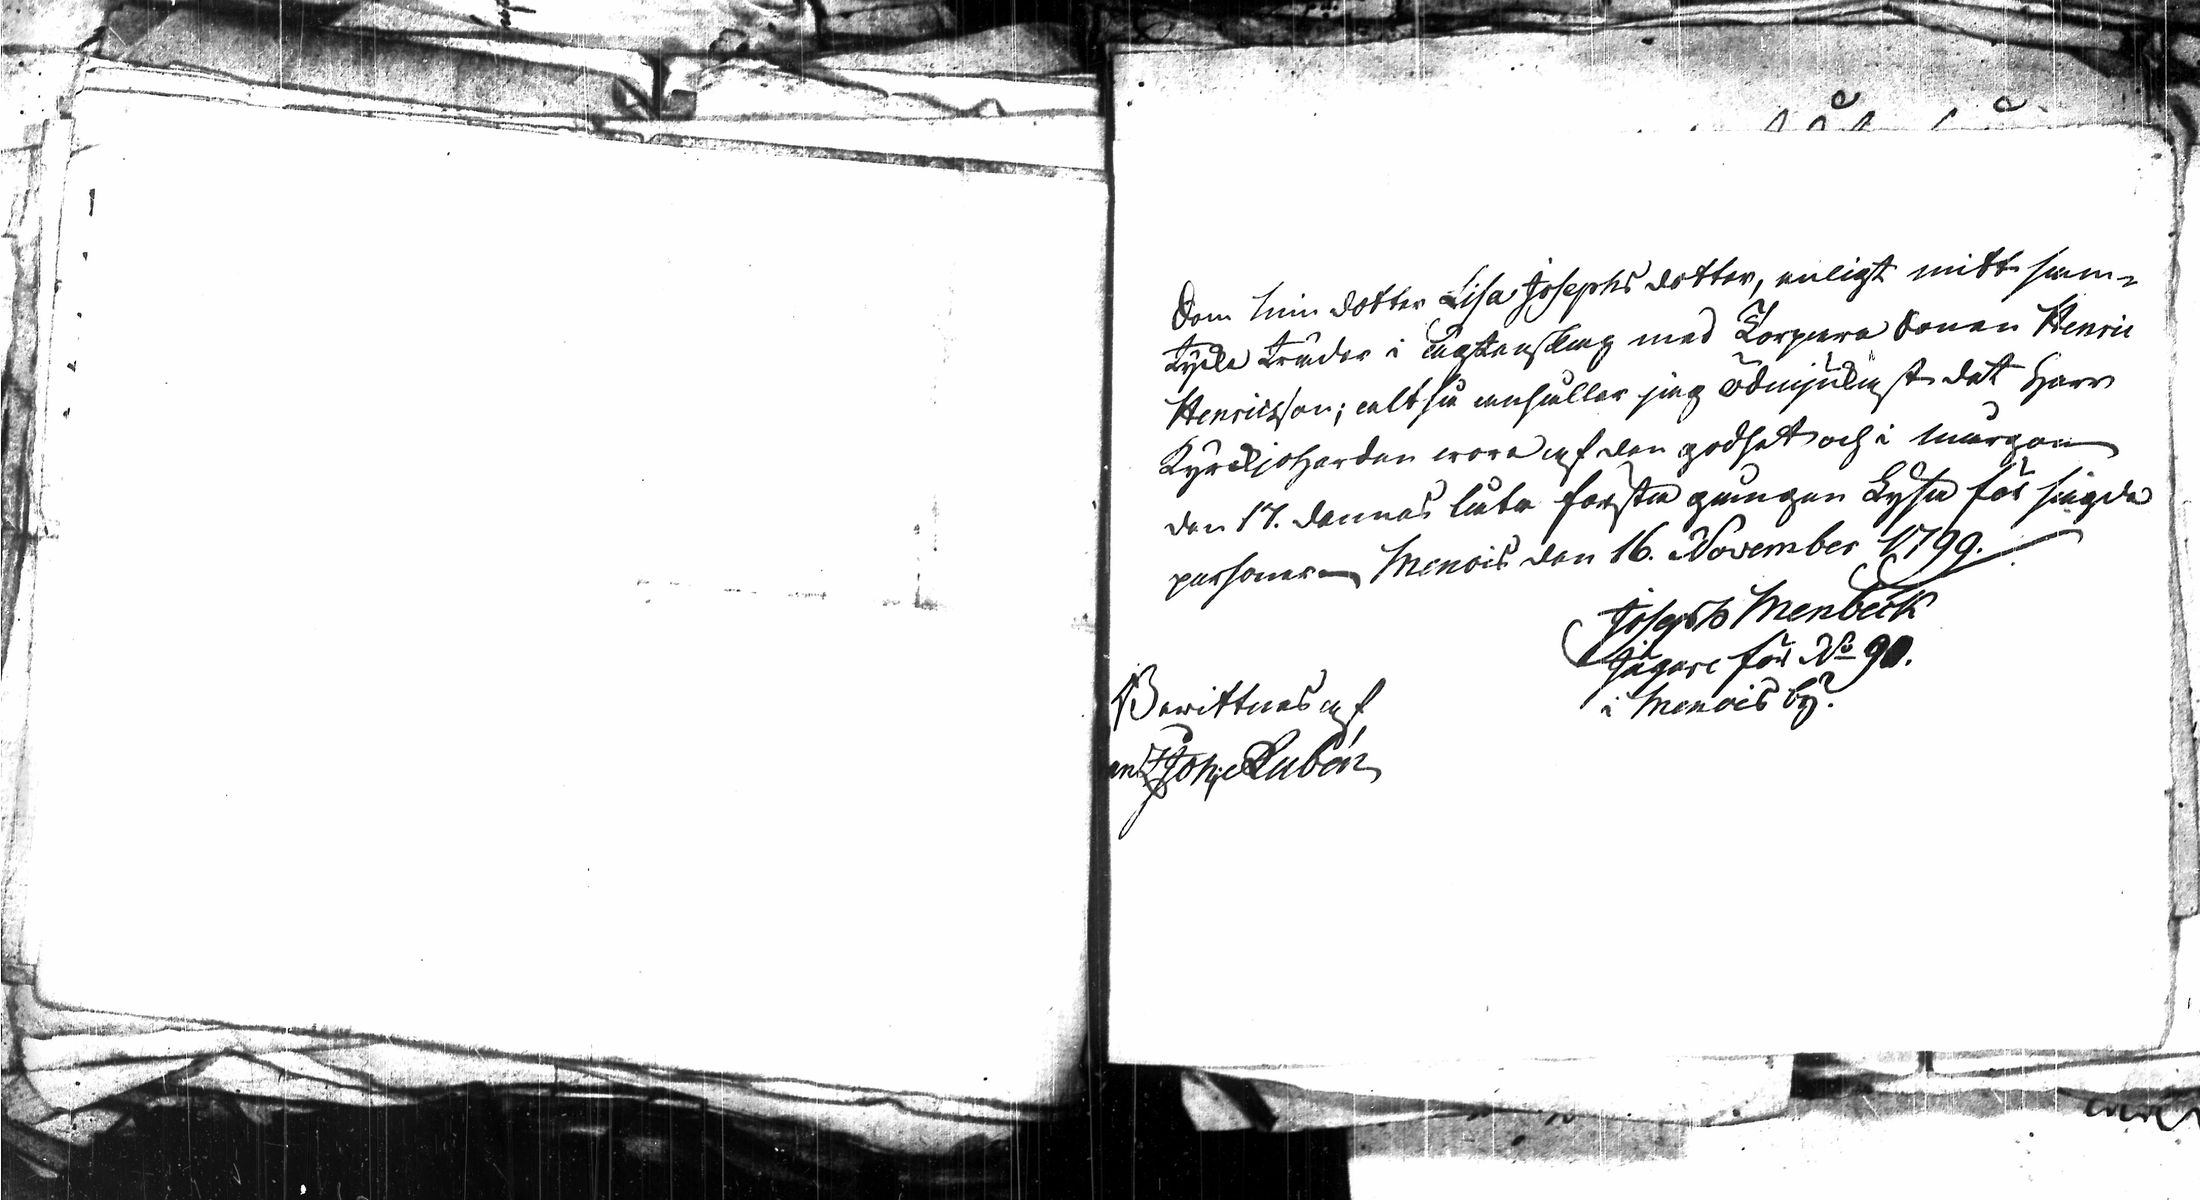 Som min dotter Lisa Josephs dotter, enligt mitt sam-
tycke träder i ägtenskap med Torpare Sonen Henric
Henricsson; altså anhåller jag ödmjukast det Herr
Kyrckjoherden wore af den godhet och i morgon
den 17. dennes låta första gången Lysa för sagde
personer Menois den 16. November 1799.
Joseph Menbeck
Jägare för No 90.
i Menois by.
Bewittnas af
Joh: Lubén